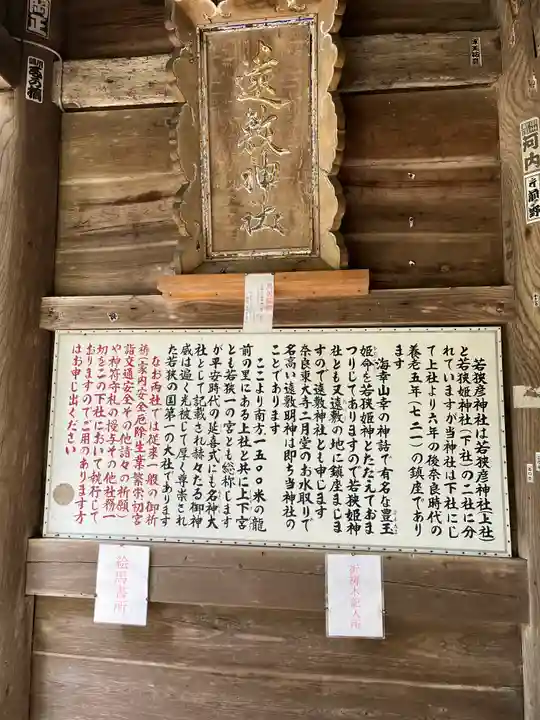 遠敷神社
若狭彦神社は若狭彦神社(上社)
と若狭姫神社(下社)の二社に分
れていますが当神社は下社にし
て上社より六年の後奈良時代の
養老五年(七二一)の鎮座であり
ます
海幸山幸の神話で有名な豊玉
姫命を若狭姫神とたたえておま
つりしてありますので若狭姫神
社とも又遠敷の地に鎮座まします
すので遠敷神社とも申します
奈良東大寺二月堂のお水取りで
名高い遠敷明神は即ち当神社の
ことであります
ここより南方一五〇〇米の龍
前の里にある上社と共に上下宮
とも若狭一の宮とも総称します
が平安時代の延喜式にも名神大
社として記載され赫々たる御神
威は遍く光被して厚く尊崇され
た若狭の国第一の大社であります
なお両社では従来一般の御祈
祷(家内安全厄除生業繁栄初宮
詣交通安全その他諸々の祈願)
や神符守札の授与その他社務一
切をこの下社において執行して
おりますのでご用のあります方
はお申し出ください
絵馬書所
祈祷木記入所
河内